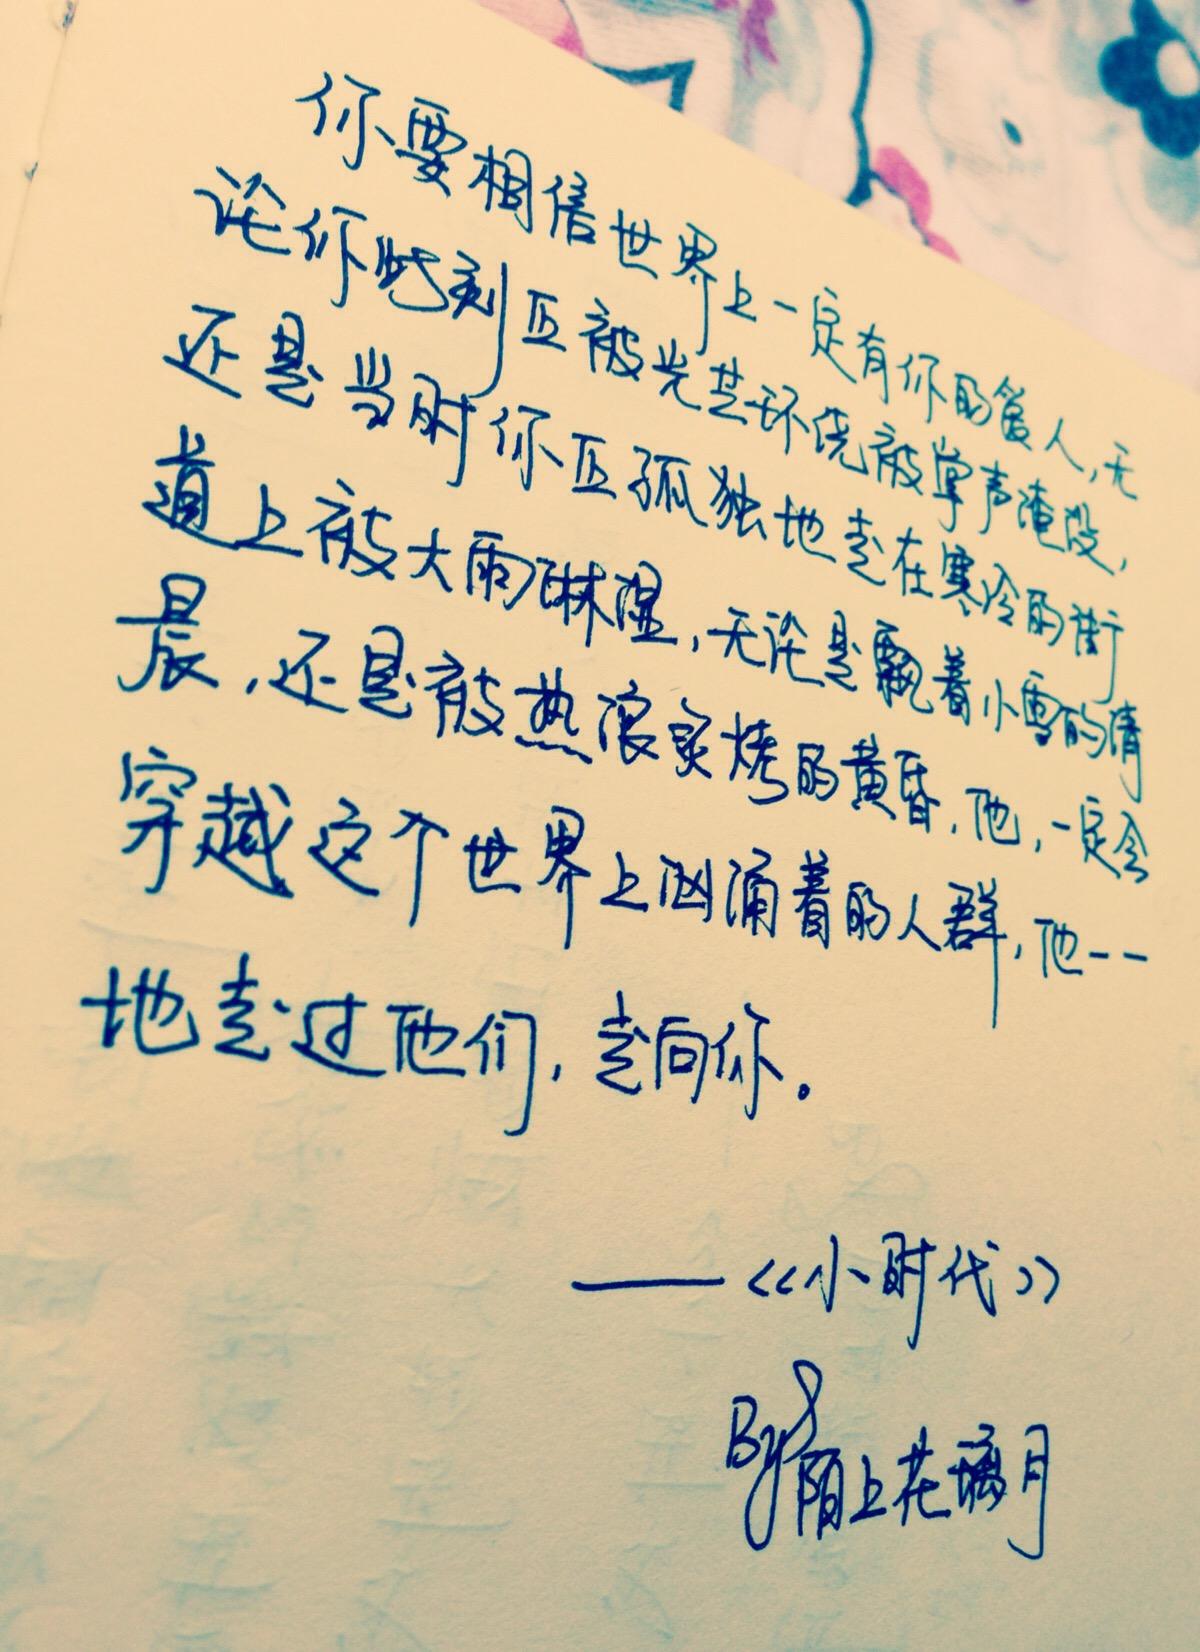 你要相信世界上一定有你的爱人,无
论你此刻正被光芒环绕被掌声淹没,
还是当时你正孤独地走在寒冷的街
道上被大雨淋湿,无论是飘着小雪的清
晨,还是被热浪炙烤的黄昏,他,一定会
穿越这个世界上汹涌着的人群,他一一
地走过他们,走向你。
——《小时代》
By陌上花璃月